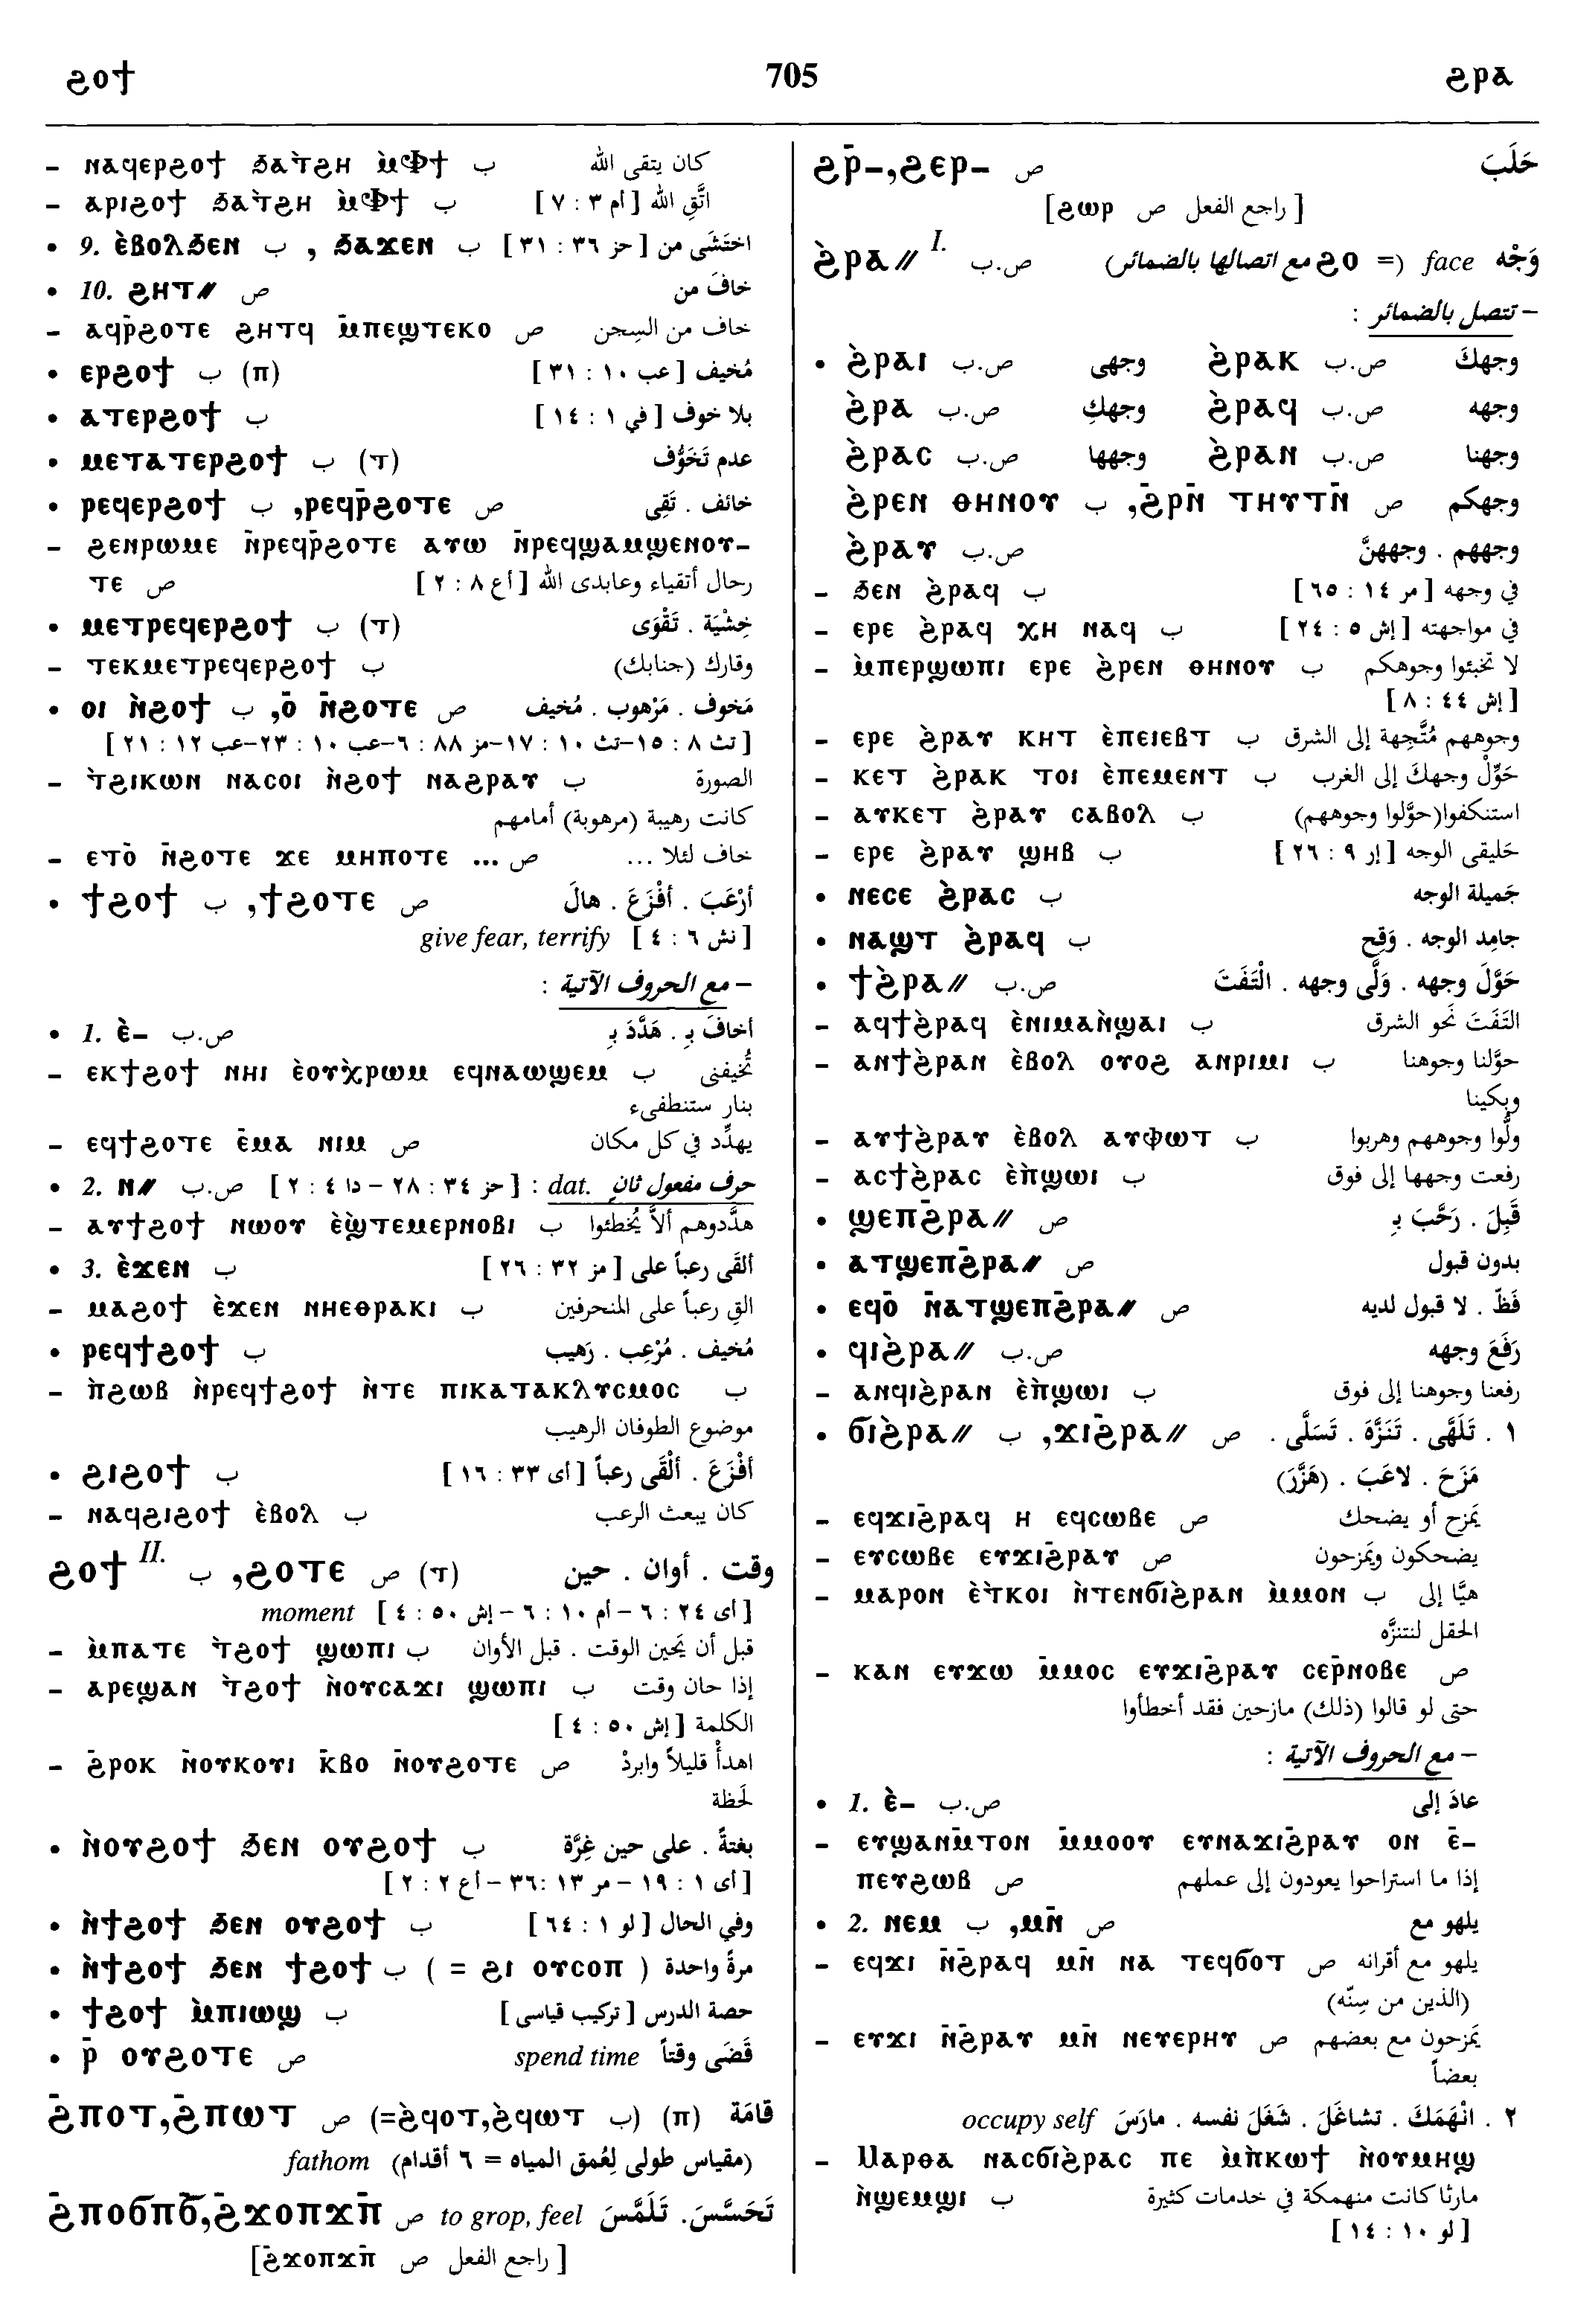 ϩⲟϯ 705 ϩⲣⲁ
– ⲛⲁϥⲉⲣϩⲟϯ ϧⲁⲧ̀ϩⲏ ⲙ̀Ⲫϯ ب كان يتقى الله
– ⲁⲣⲓϩⲟϯ ϧⲁⲧ̀ϩⲏ ⲙ̀Ⲫϯ ب اتَّقِ الله [أم ٣ : ٧]
• 9. ⲉ̀ⲃⲟⲗϧⲉⲛ ب , ϧⲁϫⲉⲛ ب اختَشَى من [حز ٣٦ : ٣١]
• 10. ϩⲏⲧ⸗ ص خافَ من
– ⲁϥⲣ̄ϩⲟⲧⲉ ϩⲏⲧϥ ⲙ̄ⲡⲉϣⲧⲉⲕⲟ ص خاف من السِجن
• ⲉⲣϩⲟϯ ب (ⲡ) مُخيف [عب ١٠ : ٣١]
• ⲁⲧⲉⲣϩⲟϯ ب بلا خوف [في ١ : ١٤]
• ⲙⲉⲧⲁⲧⲉⲣϩⲟϯ ب (ⲧ) عدم تَخَوُّف
• ⲣⲉϥⲉⲣϩⲟϯ ب ,ⲣⲉϥⲣ̄ϩⲟⲧⲉ ص خائف . تَقِى
– ϩⲉⲛⲣⲱⲙⲉ ⲛ̄ⲣⲉϥⲣ̄ϩⲟⲧⲉ ⲁⲩⲱ ⲛ̄ⲣⲉϥϣⲁⲙϣⲉⲛⲟⲩ–
ⲧⲉ ص رحال أتقياء وعابدى الله [أع ٨ : ٢]
• ⲙⲉⲧⲣⲉϥⲉⲣϩⲟϯ ب (ⲧ) خِشْيَة . تَقْوَى
– ⲧⲉⲕⲙⲉⲧⲣⲉϥⲉⲣϩⲟϯ ب وقارك (جنابك)
• ⲟⲓ ⲛ̀ϩⲟϯ ب ,ⲟ̄ ⲛ̄ϩⲟⲧⲉ ص مَخوف . مَرْهوب . مُخيف
[تث ٨ : ١٥–تث ١٠ : ١٧–مز ٨٨ : ٦–عب ١٠ : ٢٣–عب ١٢ : ٢١]
– ⲧ̀ϩⲓⲕⲱⲛ ⲛⲁⲥⲟⲓ ⲛ̀ϩⲟϯ ⲛⲁϩⲣⲁⲩ ب الصورة
كانت رهيبة (مرهوبة) أمامهم
– ⲉⲧⲟ̄ ⲛ̄ϩⲟⲧⲉ ϫⲉ ⲙⲏⲡⲟⲧⲉ ... ص خاف لئلا ...
• ϯϩⲟϯ ب ,ϯϩⲟⲧⲉ ص أرْعَبَ . أفْزَعَ . هالَ
give fear, terrify [نش ٦ : ٤]
– مع الحروف الآتية :
• 1. ⲉ̀– ص.ب أخافَ بِـ . هَدَّدَ بِـ
– ⲉⲕϯϩⲟϯ ⲛⲏⲓ ⲉ̀ⲟⲩⲭ̀ⲣⲱⲙ ⲉϥⲛⲁⲱϣⲉⲙ ب تُخيفنى
بنار ستنطفىء
– ⲉϥϯϩⲟⲧⲉ ⲉ̄ⲙⲁ ⲛⲓⲙ ص يهدِّد في كل مكان
• 2. ⲛ⸗ ص.ب حرف مفعول ثانٍ dat. : [حز ٣٤ : ٢٨ – دا ٤ : ٢]
– ⲁⲩϯϩⲟϯ ⲛⲱⲟⲩ ⲉ̀ϣ̀ⲧⲉⲙⲉⲣⲛⲟⲃⲓ ب هدَّدوهم ألاَّ يُخطئوا
• 3. ⲉ̀ϫⲉⲛ ب ألقَى رعباً على [مز ٣٢ : ٢٦]
– ⲙⲁϩⲟϯ ⲉ̀ϫⲉⲛ ⲛⲏⲉⲑⲣⲁⲕⲓ ب القِ رعباً على المنحرفين
• ⲣⲉϥϯϩⲟϯ ب مُخيف . مُرْعِب . رَهيب
– ⲡ̀ϩⲱⲃ ⲛ̀ⲣⲉϥϯϩⲟϯ ⲛ̀ⲧⲉ ⲡⲓⲕⲁⲧⲁⲕⲗⲩⲥⲙⲟⲥ ب
موضوع الطوفان الرهيب
• ϩⲓϩⲟϯ ب أفْزَعَ . ألْقَى رعباً [أى ٣٣ : ١٦]
– ⲛⲁϥϩⲓϩⲟϯ ⲉ̀ⲃⲟⲗ ب كان يبعث الرعب
ϩⲟϯ II. ب ,ϩⲟⲧⲉ ص (ⲧ) وقت . أوان . حين
moment [أى ٢٤ : ٦ – أم ١٠ : ٦ – إش ٥٠ : ٤]
– ⲙ̀ⲡⲁⲧⲉ ⲧ̀ϩⲟϯ ϣⲱⲡⲓ ب قبل أن يَحين الوقت . قبل الأوان
– ⲁⲣⲉϣⲁⲛ ⲧ̀ϩⲟϯ ⲛ̀ⲟⲩⲥⲁϫⲓ ϣⲱⲡⲓ ب إذا حان وقت
الكلمة [إش ٥٠ : ٤]
– ϩ̄ⲣⲟⲕ ⲛ̄ⲟⲩⲕⲟⲩⲓ ⲕ̄ⲃⲟ ⲛ̄ⲟⲩϩⲟⲧⲉ ص اهدأْ قليلاً وابردْ
لَحظة
• ⲛ̀ⲟⲩϩⲟϯ ϧⲉⲛ ⲟⲩϩⲟϯ ب بغتةً . على حين غِرَّة
[أى ١ : ١٩ – مر ١٣ :٣٦ – أع ٢ : ٢]
• ⲛ̀ϯϩⲟϯ ϧⲉⲛ ⲟⲩϩⲟϯ ب وفي الحال [لو ١ : ٦٤]
• ⲛ̀ϯϩⲟϯ ϧⲉⲛ ϯϩⲟϯ ب ( = ϩⲓ ⲟⲩⲥⲟⲡ ) مرةً واحدة
• ϯϩⲟϯ ⲙ̀ⲡⲓⲱϣ ب حصة الدرس [تركيب قياسى]
• ⲣ̄ ⲟⲩϩⲟⲧⲉ ص spend time قَضَى وقتاً
ϩ̄ⲡⲟⲧ,ϩ̄ⲡⲱⲧ ص (=ϩ̀ϥⲟⲧ,ϩ̀ϥⲱⲧ ب) (ⲡ) قامَة
fathom (مقياس طولى لِعُمق المياه = ٦ أقدام)
ϩ̄ⲡⲟϭⲡϭ̄,ϩ̄ϫⲟⲡϫⲡ̄ ص to grop, feel تَحَسَّسَ. تَلَمَّسَ
[راجع الفعل ص ϩ̄ϫⲟⲡϫⲡ̄]
ϩⲣ̄–,ϩⲉⲣ– ص حَلَبَ
[راجع الفعل ص ϩⲱⲣ]
ϩ̀ⲣⲁ⸗ I. ص.ب وَجْه face (= ϩⲟ مع اتصالها بالضمائر)
– تتصل بالضمائر :
• ϩ̀ⲣⲁⲓ ص.ب وجهى ϩ̀ⲣⲁⲕ ص.ب وجهكَ
ϩ̀ⲣⲁ ص.ب وجهكِ ϩ̀ⲣⲁϥ ص.ب وجهه
ϩ̀ⲣⲁⲥ ص.ب وجهها ϩ̀ⲣⲁⲛ ص.ب وجهنا
ϩ̀ⲣⲉⲛ ⲑⲏⲛⲟⲩ ب ,ϩ̄ⲣⲛ̄ ⲧⲏⲩⲧⲛ̄ ص وجهكم
ϩ̀ⲣⲁⲩ ص.ب وجههم . وجههنَّ
– ϧⲉⲛ ϩ̀ⲣⲁϥ ب في وجهه [مر ١٤ : ٦٥]
– ⲉⲣⲉ ϩ̀ⲣⲁϥ ⲭⲏ ⲛⲁϥ ب في مواجهته [إش ٥ : ٢٤]
– ⲙ̀ⲡⲉⲣϣⲱⲡⲓ ⲉⲣⲉ ϩ̀ⲣⲉⲛ ⲑⲏⲛⲟⲩ ب لا تَخبئوا وجوهكم
[إش ٤٤ : ٨]
– ⲉⲣⲉ ϩ̀ⲣⲁⲩ ⲕⲏⲧ ⲉ̀ⲡⲉⲓⲉⲃⲧ ب وجوههم مُتَّجِهة إلى الشرق
– ⲕⲉⲧ ϩ̀ⲣⲁⲕ ⲧⲟⲓ ⲉ̀ⲡⲉⲙⲉⲛⲧ ب حَوِّلْ وجهكَ إلى الغرب
– ⲁⲩⲕⲉⲧ ϩ̀ⲣⲁⲩ ⲥⲁⲃⲟⲗ ب استنكفوا(حوَّلوا وجوههم)
– ⲉⲣⲉ ϩ̀ⲣⲁⲩ ϣⲏⲃ ب حَليقى الوجه [إر ٩ : ٢٦]
• ⲛⲉⲥⲉ ϩ̀ⲣⲁⲥ ب جَميلة الوجه
• ⲛⲁϣⲧ ϩ̀ⲣⲁϥ ب جامِد الوجه . وَقِح
• ϯϩ̀ⲣⲁ⸗ ص.ب حَوَّلَ وجهه . وَلَّى وجهه . الْتَفَتَ
– ⲁϥϯϩ̀ⲣⲁϥ ⲉ̀ⲛⲓⲙⲁⲛ̀ϣⲁⲓ ب التَفَتَ نَحو الشرق
– ⲁⲛϯϩ̀ⲣⲁⲛ ⲉ̀ⲃⲟⲗ ⲟⲩⲟϩ ⲁⲛⲣⲓⲙⲓ ب حوَّلنا وجوهنا
وبكينا
– ⲁⲩϯϩ̀ⲣⲁⲩ ⲉ̀ⲃⲟⲗ ⲁⲩⲫⲱⲧ ب ولَّوا وجوههم وهربوا
– ⲁⲥϯϩ̀ⲣⲁⲥ ⲉ̀ⲡ̀ϣⲱⲓ ب رفعت وجهها إلى فوق
• ϣⲉⲡϩ̄ⲣⲁ⸗ ص قَبِلَ . رَحَّبَ بِـ
• ⲁⲧϣⲉⲡϩ̄ⲣⲁ⸗ ص بدون قبول
• ⲉϥⲟ̄ ⲛ̄ⲁⲧϣⲉⲡϩ̄ⲣⲁ⸗ ص فَظّ . لا قبول لديه
• ϥⲓϩ̀ⲣⲁ⸗ ص.ب رَفَعَ وجهه
– ⲁⲛϥⲓϩ̀ⲣⲁⲛ ⲉ̀ⲡ̀ϣⲱⲓ ب رفعنا وجوهنا إلى فوق
• ϭⲓϩ̀ⲣⲁ⸗ ب ,ϫⲓϩ̄ⲣⲁ⸗ ص ١ . تَلَهَّى . تَنَزَّهَ . تَسَلَّى .
مَزَحَ . لاعَبَ . (هَزَّرَ)
– ⲉϥϫⲓϩ̄ⲣⲁϥ ⲏ ⲉϥⲥⲱⲃⲉ ص يَمزح أو يضحك
– ⲉⲩⲥⲱⲃⲉ ⲉⲩϫⲓϩ̄ⲣⲁⲩ ص يضحكون ويَمزحون
– ⲙⲁⲣⲟⲛ ⲉ̀ⲧ̀ⲕⲟⲓ ⲛ̀ⲧⲉⲛϭⲓϩ̀ⲣⲁⲛ ⲙ̀ⲙⲟⲛ ب هيَّا إلى
الحقل لنتنزَّه
– ⲕⲁⲛ ⲉⲩϫⲱ ⲙ̄ⲙⲟⲥ ⲉⲩϫⲓϩ̄ⲣⲁⲩ ⲥⲉⲣ̄ⲛⲟⲃⲉ ص
حتى لو قالوا (ذلك) مازحين فقد أخطأوا
– مع الحروف الآتية :
• 1. ⲉ̀– ص.ب عادَ إلى
– ⲉⲩϣⲁⲛⲙ̄ⲧⲟⲛ ⲙ̄ⲙⲟⲟⲩ ⲉⲩⲛⲁϫⲓϩ̄ⲣⲁⲩ ⲟⲛ ⲉ̄–
ⲡⲉⲩϩⲱⲃ ص إذا ما استراحوا يعودون إلى عملهم
• 2. ⲛⲉⲙ ب ,ⲙⲛ̄ ص يلهو مع
– ⲉϥϫⲓ ⲛ̄ϩ̄ⲣⲁϥ ⲙⲛ̄ ⲛⲁ ⲧⲉϥϭⲟⲧ ص يلهو مع أقرانه
(الذين من سِنّه)
– ⲉⲩϫⲓ ⲛ̄ϩ̄ⲣⲁⲩ ⲙⲛ̄ ⲛⲉⲩⲉⲣⲏⲩ ص يَمزحون مع بعضهم
بعضاً
٢ . انْهَمَكَ . تشاغَلَ . شَغَلَ نفسه . مارَسَ occupy self
– Ⲙⲁⲣⲑⲁ ⲛⲁⲥϭⲓϩ̀ⲣⲁⲥ ⲡⲉ ⲙ̀ⲡ̀ⲕⲱϯ ⲛ̀ⲟⲩⲙⲏϣ
ⲛ̀ϣⲉⲙϣⲓ ب مارثا كانت منهمكة في خدمات كثيرة
[لو ١٠ : ١٤]